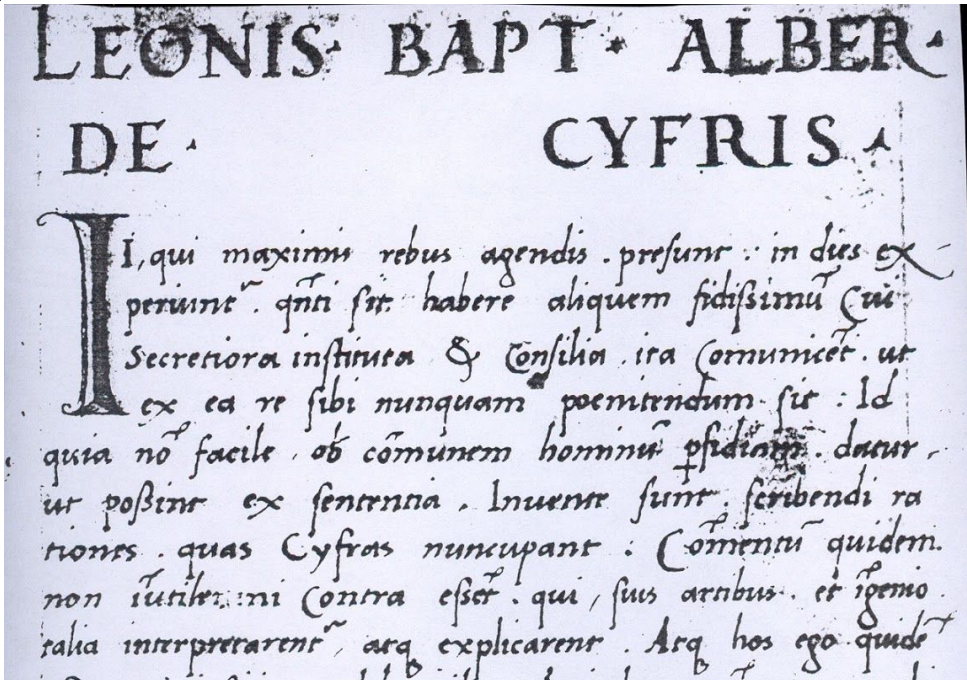 LEONIS· BAPT· ALBER·
DE· CYFRIS·
II, qui maximis rebus agendis . presunt : in dies ex
periunt᷑ . qn̄ti sit habere aliquem fidissimū Cui
Secretiora instituta & Consilia . ita Comunicēt . ut
ex ea re sibi nunquam poenitendum sit : Id
quia nō facile . ob cōmunem hominū ꝑfidiam . datur ,
ut poßint ex sententia . Invente sunt . scribendi ra
tiones . quas Cyfras nuncupant : Cōmentū quidem.
non īutile: ni Contra essēt . qui , suis artibus . et īgenio
talia interpretarent᷑ , atq explicarent . Atq hos ego quidē